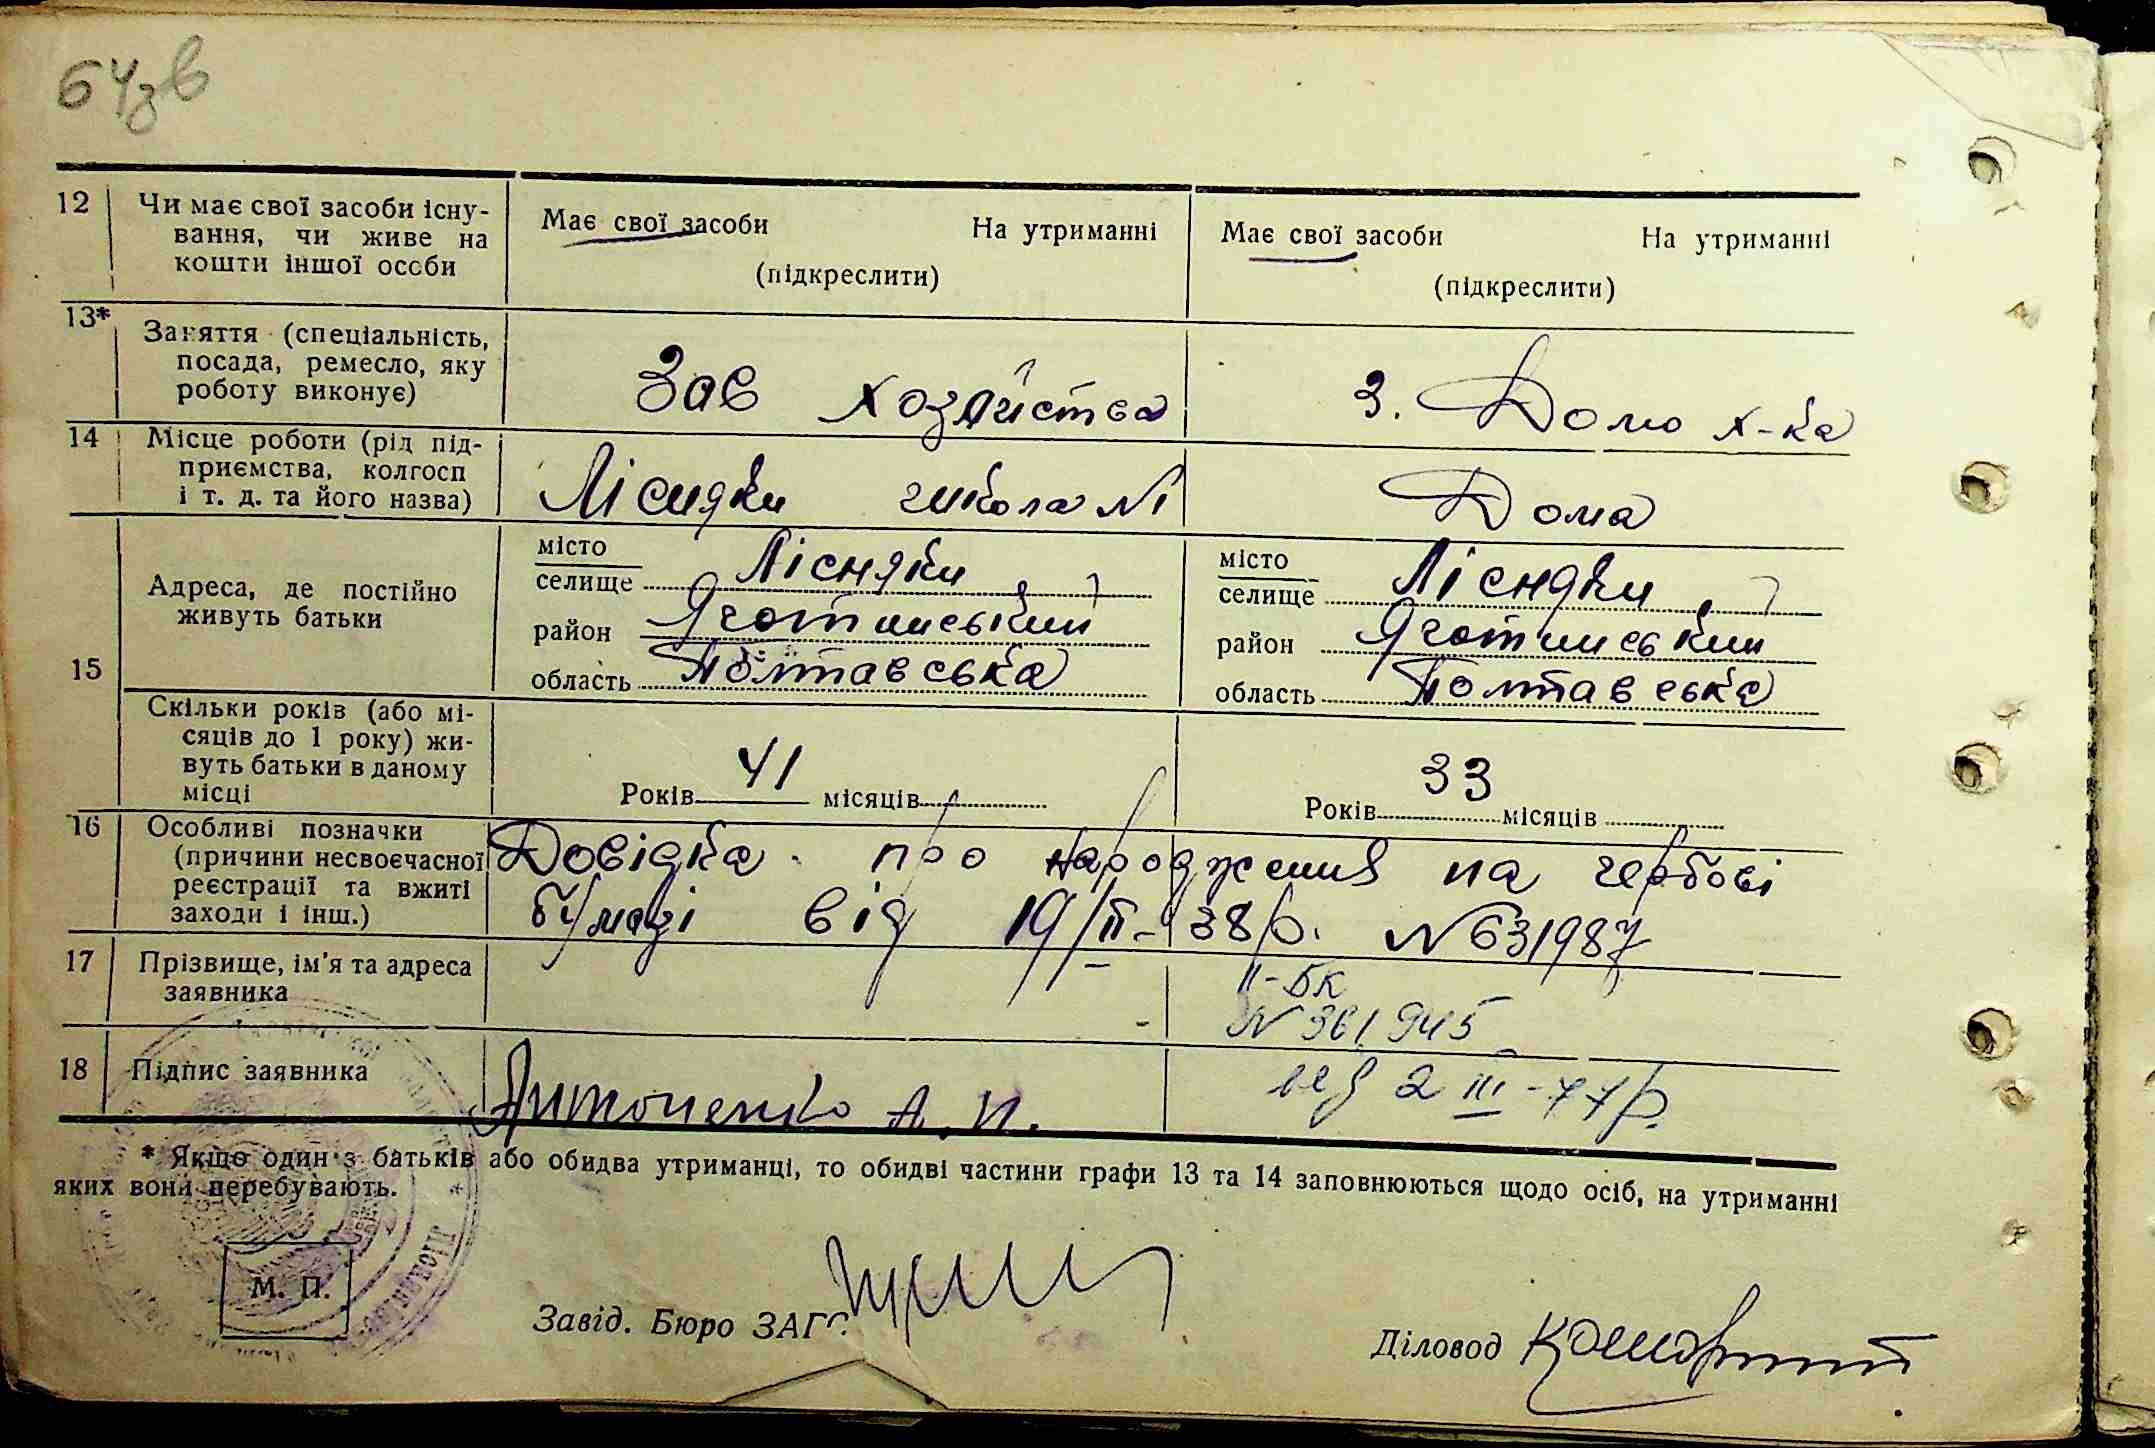 64зв
12 Чи має свої засоби існу-
вання, чи живе на
кошти іншої особи
Має свої засоби На утриманні
(підкреслити)
Має свої засоби На утриманні
(підкреслити)
13* Заняття (спеціальність,
посада, ремесло, яку
роботу виконує)
Зав хозяйства
З. Домо х-ка
14 Місце роботи (рід під-
приємства, колгосп
і т. д. та його назва)
Лісняки школа №1
Дома
15 Адреса, де постійно
живуть батьки
місто
селище Лісняки
район Яготинський
область Полтавська
місто
селище Лісняки
район Яготинський
область Полтавська
Скільки років (або мі-
сяців до 1 року) жи-
вуть батьки в даному
місці
Років 41 місяців
Років 33 місяців
16 Особливі позначки
(причини несвоєчасної
реєстрації та вжиті
заходи і інш.)
Довідка про народження на гербові
бумазі від 19/II-38р. №631987
17 Прізвище, ім'я та адреса
заявника
II-БК
№361945
від 2 III-77р.
18 Підпис заявника
Антоненко А. И.
* Якщо один з батьків або обидва утриманці, то обидві частини графи 13 та 14 заповнюються щодо осіб, на утриманні
яких вони перебувають.
М. П.
Завід. Бюро ЗАГС
Діловод